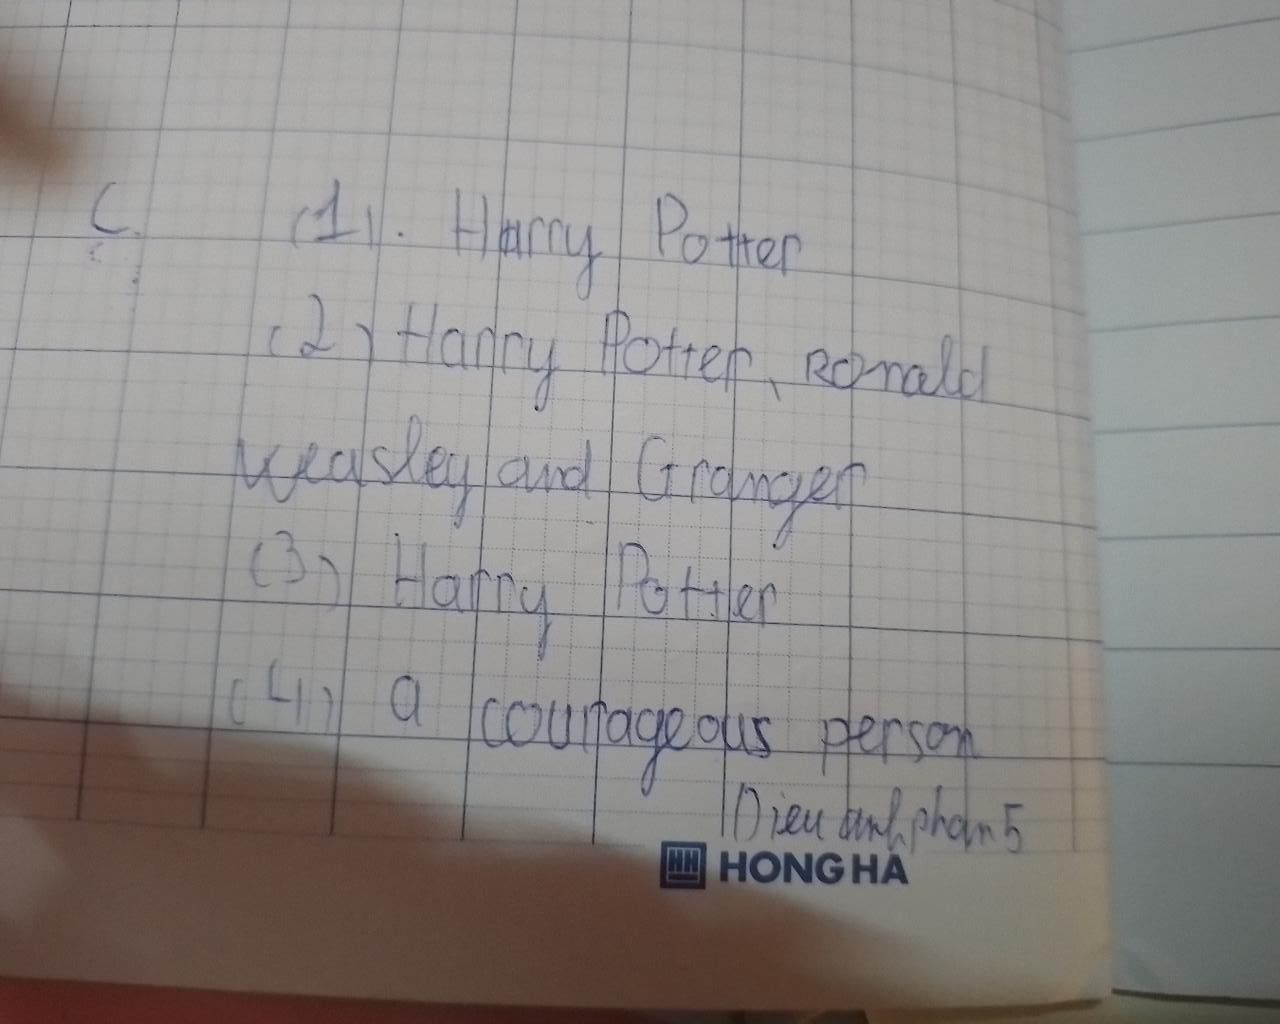 C. (1). Harry Potter
(2) Harry Potter, Ronald
Weasley and Granger
(3) Harry Potter
(4) a courageous person
Dieu anh phan 5
HH HONG HA